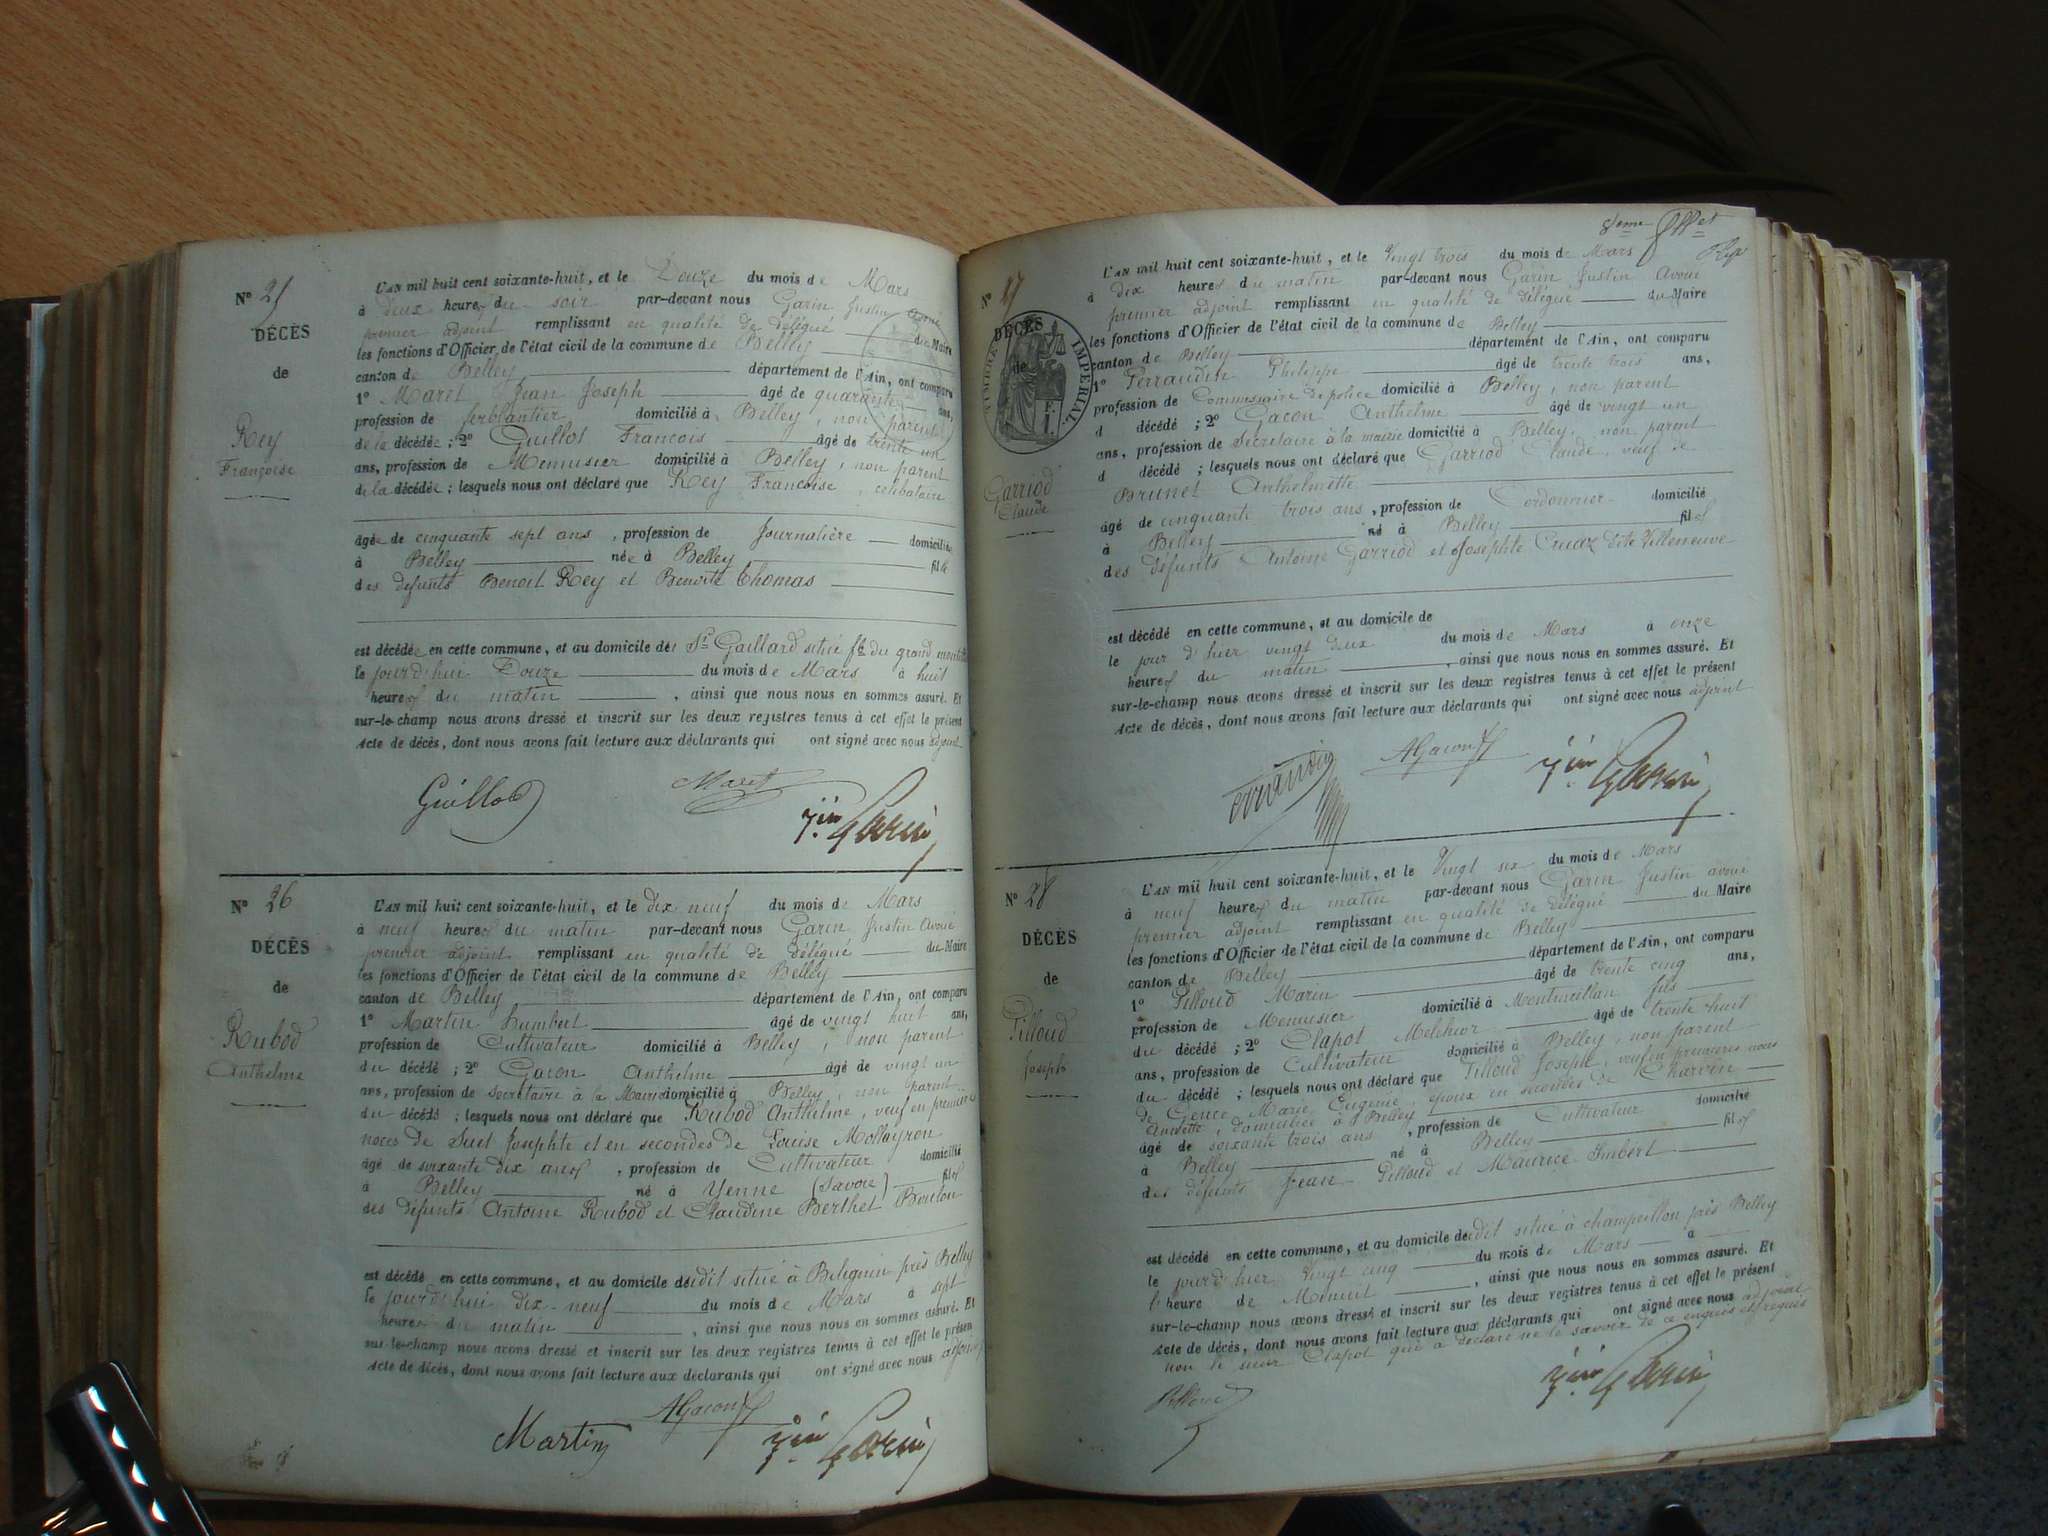 N° 25
DÉCÈS
de
Rey
Françoise
L'AN mil huit cent soixante-huit, et le Douze du mois de Mars
à deux heures du soir par-devant nous Garin Justin avoué
premier adjoint remplissant en qualité de délégué du Maire
les fonctions d'Officier de l'état civil de la commune de Belley
canton de Belley département de l'Ain, ont comparu
1° Maret Jean Joseph âgé de quarante ans,
profession de ferblantier domicilié à Belley, non parent
de la décédée ; 2° Guillot François âgé de trente un
ans, profession de Menuisier domicilié à Belley, non parent
de la décédée ; lesquels nous ont déclaré que Rey Françoise, célibataire
âgée de cinquante sept ans, profession de Journalière domiciliée
à Belley née à Belley fille
des défunts Benoit Rey et Benoite Thomas
est décédée en cette commune, et au domicile de Sr Gaillard situé fg du grand
le jourd'hui Douze du mois de Mars à huit
heures du matin, ainsi que nous nous en sommes assuré. Et
sur-le-champ nous avons dressé et inscrit sur les deux registres tenus à cet effet le présent
Acte de décès, dont nous avons fait lecture aux déclarants qui ont signé avec nous adjoint
Guillot Maret
Jin Garin
N° 26
DÉCÈS
de
Rubod
Anthelme
L'AN mil huit cent soixante-huit, et le dix neuf du mois de Mars
à neuf heures du matin par-devant nous Garin Justin avoué
premier adjoint remplissant en qualité de délégué du Maire
les fonctions d'Officier de l'état civil de la commune de Belley
canton de Belley département de l'Ain, ont comparu
1° Martin humbert âgé de vingt huit ans,
profession de Cultivateur domicilié à Belley, non parent
du décédé ; 2° Gacon Anthelme âgé de vingt un
ans, profession de Secrétaire à la Mairie domicilié à Belley, non parent
du décédé ; lesquels nous ont déclaré que Rubod Anthelme, veuf en premières
noces de Suet Josephte et en secondes de Louise Mollayron
âgé de soixante dix ans, profession de Cultivateur domicilié
à Belley né à Yenne (Savoie) fils
des défunts Antoine Rubod et Claudine Berthet Bouton
est décédé en cette commune, et au domicile dedit situé à Billignin près Belley
le jourd'hui dix-neuf du mois de Mars à sept
heures du matin, ainsi que nous nous en sommes assuré. Et
sur-le-champ nous avons dressé et inscrit sur les deux registres tenus à cet effet le présen
Acte de décès, dont nous avons fait lecture aux déclarants qui ont signé avec nous adjoint
AGacon
Martin Jin Garin
8eme
N° 27
DÉCÈS
de
TIMBRE IMPÉRIAL
Garriod
Claude
L'AN mil huit cent soixante-huit, et le Vingt trois du mois de Mars
à dix heures du matin par-devant nous Garin Justin avoué
premier adjoint remplissant en qualité de délégué du Maire
les fonctions d'Officier de l'état civil de la commune de Belley
canton de Belley département de l'Ain, ont comparu
1° Perraudin Philippe âgé de trente trois ans,
profession de Commissaire de police domicilié à Belley, non parent
d décédé ; 2° Gacon Anthelme âgé de vingt un
ans, profession de Secrétaire à la mairie domicilié à Belley, non parent
d décédé ; lesquels nous ont déclaré que Garriod Claude, veuf de
Brunet Anthelmette
âgé de cinquante trois ans, profession de Cordonnier domicilié
à Belley né à Belley fils
des défunts Antoine Garriod et Josephte Cuaz dite Villeneuve
est décédé en cette commune, et au domicile de
le jour d'hier vingt deux du mois de Mars à onze
heures du matin, ainsi que nous nous en sommes assuré. Et
sur-le-champ nous avons dressé et inscrit sur les deux registres tenus à cet effet le présent
Acte de décès, dont nous avons fait lecture aux déclarants qui ont signé avec nous adjoint
Perraudin AGacon Jin Garin
N° 28
DÉCÈS
de
Pilloud
Joseph
L'AN mil huit cent soixante-huit, et le Vingt six du mois de Mars
à neuf heures du matin par-devant nous Garin Justin avoué
premier adjoint remplissant en qualité de délégué du Maire
les fonctions d'Officier de l'état civil de la commune de Belley
canton de Belley département de l'Ain, ont comparu
1° Pilloud Marin âgé de trente cinq ans,
profession de Menuisier domicilié à fils
du décédé ; 2° Clapot Melchior âgé de trente huit
ans, profession de Cultivateur domicilié à Belley, non parent
du décédé ; lesquels nous ont déclaré que Pilloud Joseph, veuf en premières noces
de Marie Eugénie, époux en secondes de Charvin
domiciliée à Belley
âgé de soixante trois ans, profession de Cultivateur domicilié
à Belley né à Belley fils
des défunts Jean Pilloud et Maurice Imbert
est décédé en cette commune, et au domicile dedit situé à champeillon près Belley
le jourd'hier vingt cinq du mois de Mars à
l'heure de Minuit, ainsi que nous nous en sommes assuré. Et
sur-le-champ nous avons dressé et inscrit sur les deux registres tenus à cet effet le présent
Acte de décès, dont nous avons fait lecture aux déclarants qui ont signé avec nous adjoint
non le sieur Clapot qui a déclaré ne le savoir de ce enquis et requis
Pilloud Jin Garin